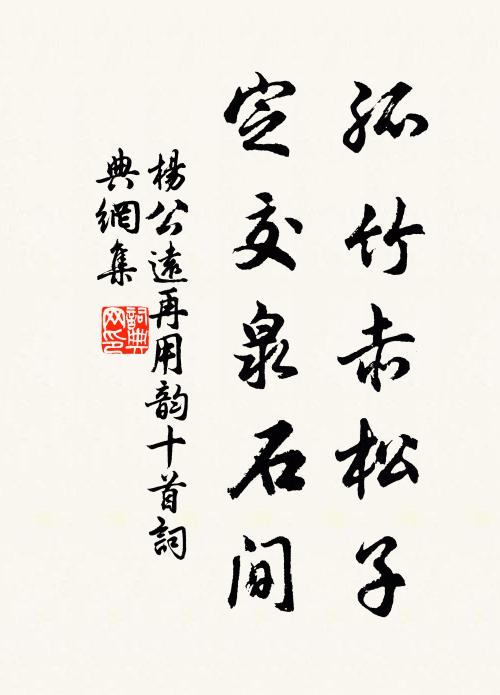 孤竹赤松子
定交泉石間
楊公遠再用韵十首詞
典網集
詞典網印